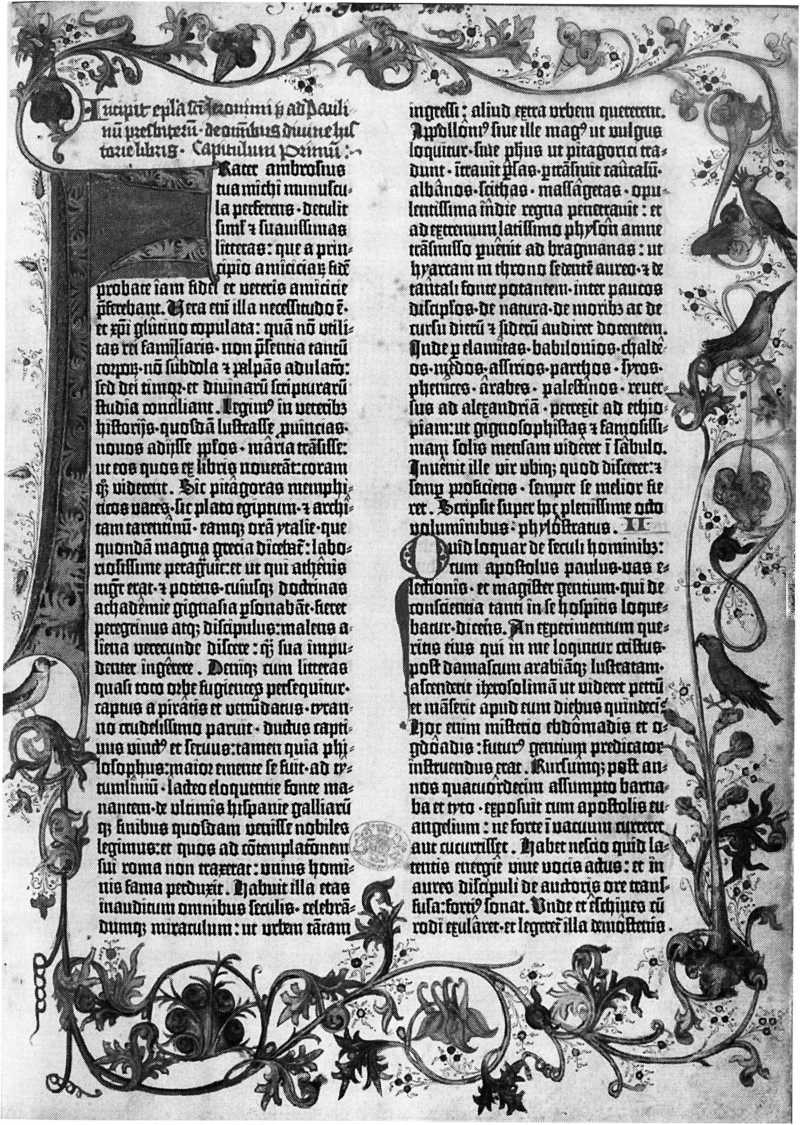 Incipit epl'a sancti iheronimi p̄ ad Pauli
nū presbiterū · de omnibus divine his
torie libris · Capitulum Primū :
Frater ambrosius
tua michi munuscu-
la perferens · detulit
simł ⁊ suavissimas
litteras : que a prin-
cipio amiciciarꝝ fidē
probate iam fidei et veteris amicicie
p̄ferebant. Vera enī illa necessitudo ē ·
et xp̄i glutino copulata : quā nō utili-
tas rei familiaris · non p̄sentia tantū
corporꝝ · nō subdola ⁊ palpās adulato :
sed dei timor · et divinarū scripturarū
studia conciliant. Legimꝰ in veteribꝫ
historijs · quosdā lustrasse ꝓuincias ·
nouos adijsse pp̄los · maria trāsisse :
ut eos quos ex libris nouerāt : coram
qꝫ viderent. Sic pitagoras memphi-
ticos vates · sic plato egiptum · ⁊ archi-
tam tarentinū · eamqꝫ orā ytalie · que
quondā magna grecia dicebat̄ : labo-
riosissime peragravit : et ut qui athenis
mgr̄ erat · ⁊ potens · cuiusqꝫ doctrinas
achademie gignasia ꝑsonabāt · fieret
peregrinus atqꝫ discipulus : malens a-
liena verecunde discere : qꝫ sua impu-
denter ingerere. Deniqꝫ cum litteras
quasi toto orbe fugientes persequitur ·
captus a piratis et venūdatus · tyran-
no crudelissimo paruit · ductus capti-
uus vinctꝰ et seruus : tamen quia phi-
losophus : maior emente se fuit · ad ty-
tumliuiū · lacteo eloquentie fonte ma-
nantem · de ultimis hispanie galliarū
qꝫ finibus quosdam venisse nobiles
legimus : et quos ad cōtemplationem
sui roma non traxerat : unius homi-
nis fama perduxit. Habuit illa etas
inauditum omnibus seculis · celebrā-
dumqꝫ miraculum : ut urbem tātam
ingressi : aliud extra urbem quererent.
Apollonꝰ siue ille magꝰ ut vulgus
loquitur · siue ph̄us ut pitagorici tra-
dunt · ītrauit p̄sas · ꝑtrāsiuit caucasū ·
albanos · scithas · massagetas · opu-
lentissima indie regna penetrauit : et
ad extremum latissimo physon amne
trāsmisso ꝑuēit ad bragmanas : ut
hyarcam in throno sedentē aureo · ⁊ de
tantali fonte potantem · inter paucos
discipl'os · de natura · de moribꝫ ac de
cursu dierū ⁊ siderū audiret docentem.
Inde ꝑ elamitas · babilonios · chalde-
os · medos · assirios · parthos · syros ·
phenices · arabes · palestinos · reuer-
sus ad alexandriā · perrexit ad ethio-
piam : ut gignosophistas ⁊ famosissi-
mam solis mensam videret ī sabulo.
Inuenit ille vir ubiqꝫ quod disceret : ⁊
semꝑ proficiens · semper se melior fie-
ret. Scripsit super hoc plenissime octo
voluminibus · phylostratus. II
Quid loquar de seculi hominibꝫ :
cum apostolus paulus · vas e-
lectionis · et magister gentium · qui de
conscientia tanti in se hospitis loque-
batur · dicens. An experimentum que-
ritis eius qui in me loquitur cristus ·
post damascum arabiāqꝫ lustratam ·
ascenderit iherosolimā ut videret petrū
et māserit apud eum diebus quindeci ·
Hoc enim misterio ebdomadis et o-
gdoadis : futurꝰ gentium predicator
instruendus erat. Rursumqꝫ post an-
nos quatuordecim assumpto barna-
ba et tyto · exposuit cum apostolis eu-
angelium : ne forte ī vacuum curreret
aut cucurrisset. Habet nescio quid la-
tentis energie viue vocis actus : et in
aureo discipuli de auctoris ore trans-
fusa : fortiꝰ sonat. Unde et eschines cū
rodi exularet · et legeret̄ illa demosteris ·